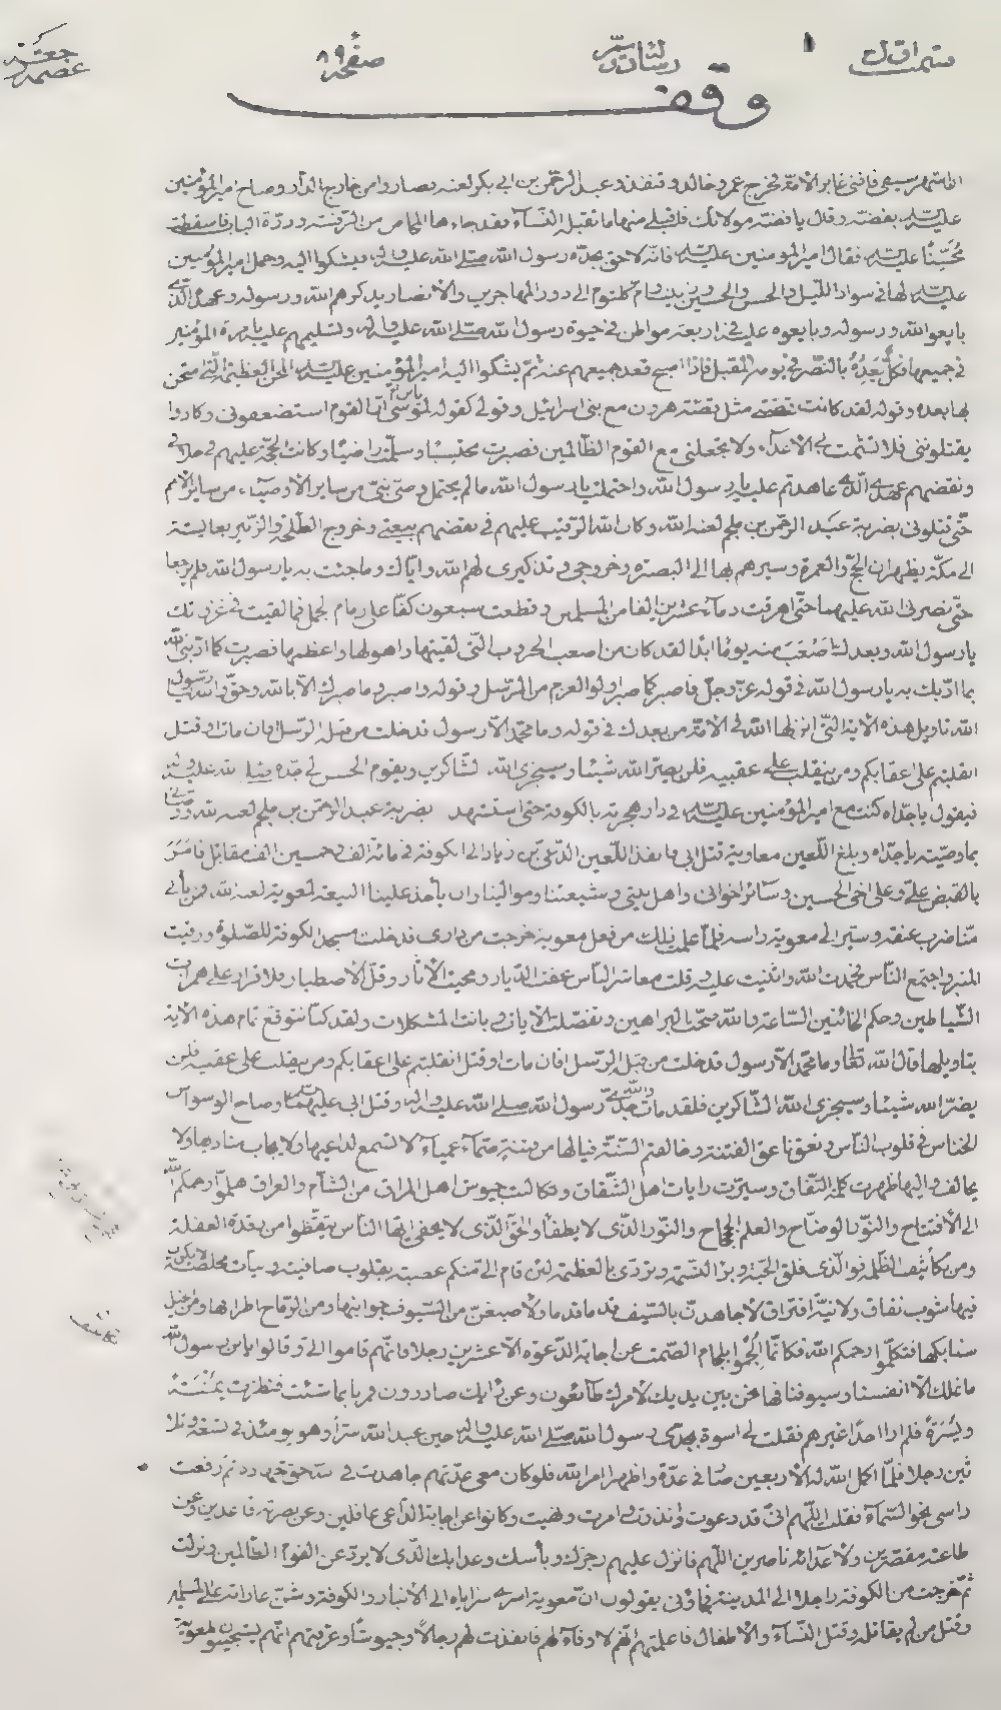 صفحه ٨٩
وقف
عليه السلام بفضته وقال يا فضه مولاتك فاقبلى منها ما تقبله النساء فقد جاءها المخاض من الرفسه وردة الباب فاسقطت
محسنا عليه السلام فقال امير المومنين عليه السلام فانه لاحق بجده رسول الله صلى الله عليه واله فيشكوا اليه وحمل امير المؤمنين
عليه السلام لها فى سواد الليل والحسن والحسين وزينب وام كلثوم الى دور المهاجرين والانصار يذكرهم الله ورسوله وعهده الذى
بايعوا الله ورسوله وبايعوه عليه فى اربعة مواطن فى حيوة رسول الله صلى الله عليه واله وتسليمهم عليه بامرة المؤمنين
فى جميعها فكل يعده بالنصر فى يومه المقبل فاذا اصبح قعد جميعهم عنه ثم يشكوا اليه امير المؤمنين عليه السلام المحن العظيمة التى امتحن
بها بعده وقوله لقد كانت قصتى مثل قصة هرون مع بنى اسرائيل وقولى كقوله لموسى يا ابن ام ان القوم استضعفونى وكادوا
يقتلوننى فلا تشمت بى الاعداء ولا تجعلنى مع القوم الظالمين فصبرت محتسبا وسلمت راضيا وكانت الحجة عليهم فى خلافى
ونقضهم عهدى الذى عاهدتهم عليه يا رسول الله واحتملت يا رسول الله ما لم يحتمل وصى نبى من ساير الاوصياء من ساير الامم
حتى قتلونى بضربة عبد الرحمن بن ملجم لعنه الله وكان الله الرقيب عليهم فى نقضهم بيعتى وخروج الطلحة والزبير بعايشة
الى مكة يظهران الحج والعمرة وسيرهم بها الى البصره وخروجى وتذكيرى لهم الله واياك وما جئت به يا رسول الله فلم يرجعا
حتى نصرنى الله عليهما حتى اهرقت دماء عشرين الفا من المسلمين وقطعت سبعون كفا على زمام الجمل فما لقيت فى غزواتك
يا رسول الله وبعدك اصعب منه يوما ابدا لقد كان من اصعب الحروب التى لقيتها واهولها واعظمها فصبرت كما ادبنى الله
بما ادبك به يا رسول الله فى قوله عز وجل فاصبر كما صبر اولوا العزم من الرسل وقوله واصبر وما صبرك الا بالله وحق والله يا رسول
الله تاويل هذه الاية التى انزلها الله فى الامة من بعدك فى قوله وما محمد الا رسول قد خلت من قبله الرسل افان مات او قتل
انقلبتم على اعقابكم ومن ينقلب على عقبيه فلن يضر الله شيئا وسيجزى الله الشاكرين ويقوم الحسن الى جده صلى الله عليه واله
فيقول يا جداه كنت مع امير المؤمنين عليه السلام فى دار هجرته بالكوفة حتى استشهد بضربة عبد الرحمن بن ملجم لعنه الله
بما وصيته يا جداه وبلغ اللعين معاوية قتل ابى فانفذ اللعين الدعى بن زياد الى الكوفة فى مائة الف وخمسين الف مقاتل فامر
بالقبض على وعلى اخى الحسين وسائر اخوانى واهل بيتى وشيعتنا وموالينا وان ياخذ علينا البيعة لمعوية لعنه الله فمن يابى
منا ضرب عنقه وسير الى معوية راسه فلما علمت ذلك من فعل معوية خرجت من دارى فدخلت مسجد الكوفة للصلوة ورقيت
المنبر واجتمع الناس فحمدت الله واثنيت عليه وقلت معاشر الناس عفت الديار ومحيت الاثار وقل الاصطبار فلا قرار على همزات
الشياطين وحكم الخائنين الساعة والله صحت البراهين وتفصلت الايات وبانت المشكلات ولقد كنا نتوقع تمام هذه الاية
بتاويلها قال الله تعالى وما محمد الا رسول قد خلت من قبله الرسل افان مات او قتل انقلبتم على اعقابكم ومن ينقلب على عقبيه فلن
يضر الله شيئا وسيجزى الله الشاكرين فلقد مات والله جدى رسول الله صلى الله عليه واله وقتل ابى عليهما السلام وصاح الوسواس
الخناس فى قلوب الناس ونعق ناعق الفتنة وخالفتم السنة فيالها من فتنة صماء عمياء لا تسمع لداعيها ولا يجاب مناديها ولا
يخالف واليها ظهرت كلمة النفاق وسيرت رايات اهل الشقاق وتكالبت جيوش اهل المراق من الشام والعراق هلموا رحمكم الله
الى الافتتاح والنور الوضاح والعلم الجحجاح والنور الذى لا يطفأ والحق الذى لا يخفى ايها الناس تيقظوا من رقدة الغفلة
ومن تكاثيف الظلمة فوالذى فلق الحبة وبرأ النسمة وتردى بالعظمة لئن قام الى منكم عصبة بقلوب صافية ونيات مخلصة لا يكون
فيها شوب نفاق ولا نية افتراق لاجاهدن بالسيف قدما قدما ولاضيقن من السيوف جوانبها ومن الرماح اطرافها ومن الخيل
سنابكها فتكلموا رحمكم الله فكانما الجموا بلجام الصمت عن اجابة الدعوه الا عشرين رجلا فانهم قاموا الى وقالوا يابن رسول الله
ما نملك الا انفسنا وسيوفنا فها نحن بين يديك لامرك طائعون وعن رايك صادرون فمرنا بما شئت فنظرت يمنة
ويسرة فلم ارا احدا غيرهم فقلت لى اسوة بجدى رسول الله صلى الله عليه واله حين عبد الله سرا وهو يومئذ فى تسعة وثلا
ثين رجلا فلما اكمل الله له الاربعين صار فى عدة واظهر امر الله فلو كان معى عدتهم جاهدت فى الله حق جهاده ثم رفعت
راسى نحو السماء فقلت اللهم انى قد دعوت وانذرت وامرت ونهيت وكانوا عن اجابة الداعى غافلين وعن نصرته قاعدين وعن
طاعته مقصرين ولاعدائه ناصرين اللهم فانزل عليهم رجزك وبأسك وعذابك الذى لا يرد عن القوم الظالمين ونزلت
ثم خرجت من الكوفة راحلا الى المدينة فجاؤنى يقولون ان معوية اسرى سراياه الى الانبار والكوفة وشن غاراته على المسلمين
وقتل من لم يقاتله وقتل النساء والاطفال فاعلمتهم انهم لا وفاء لهم فانفذت لهم رجالا وجيوشا وعرفتهم انهم يستجيبون لمعوية